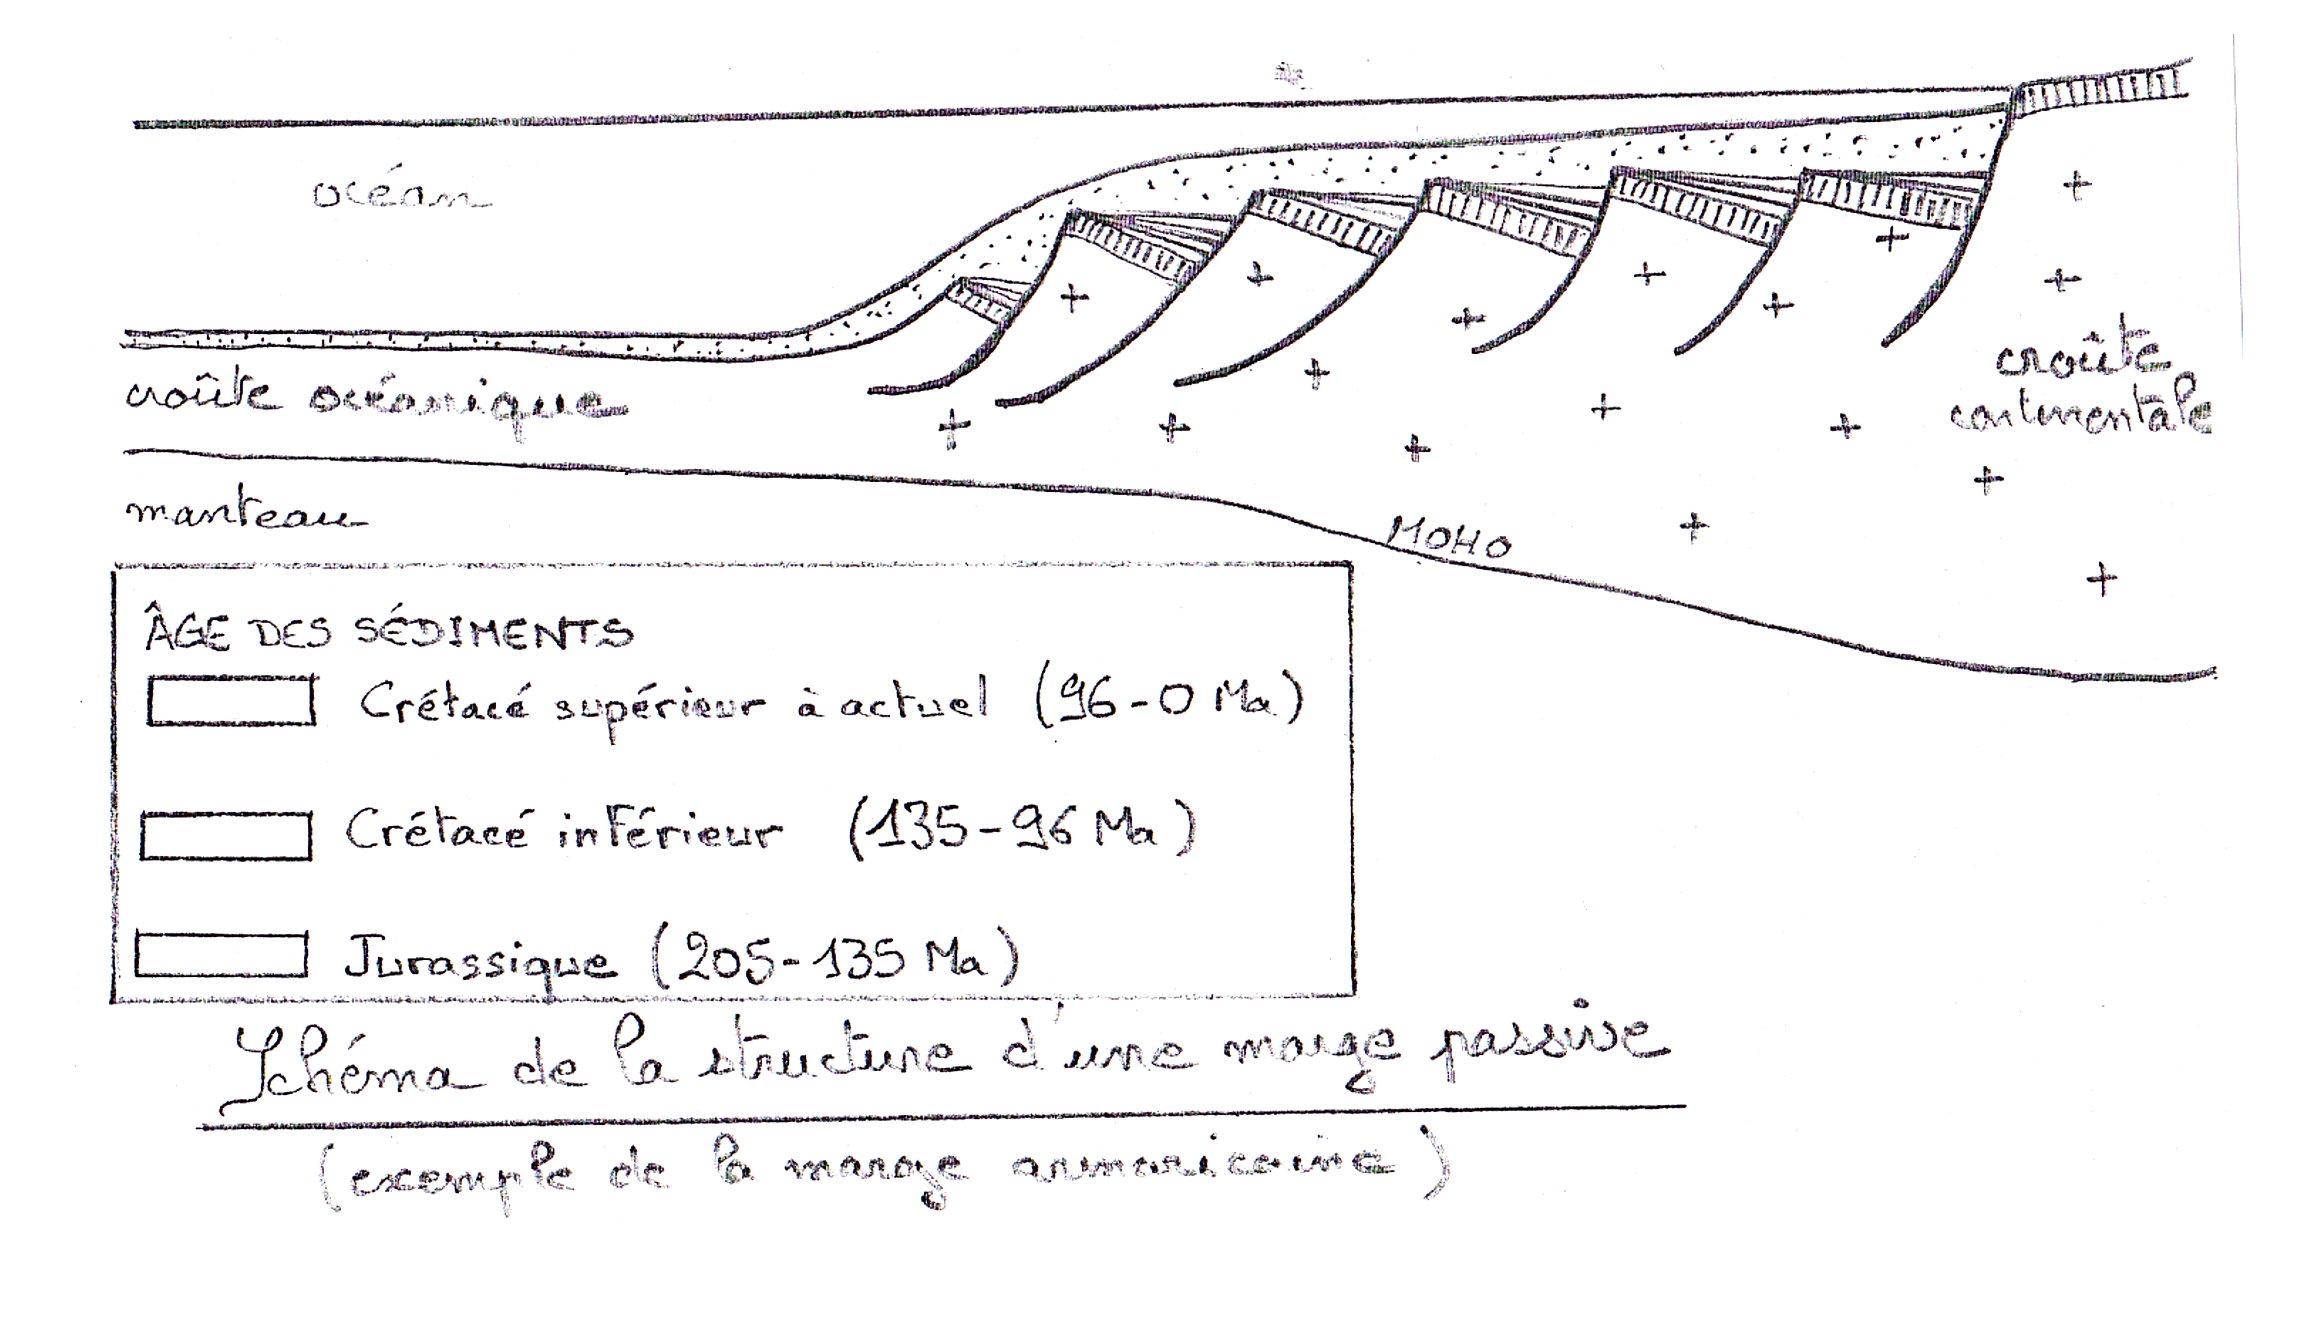 océan
croûte océanique
croûte
continentale
manteau
MOHO
ÂGE DES SÉDIMENTS
Crétacé supérieur à actuel (96-0 Ma)
Crétacé inférieur (135-96 Ma)
Jurassique (205-135 Ma)
Schéma de la structure d'une marge passive
(exemple de la marge armoricaine)